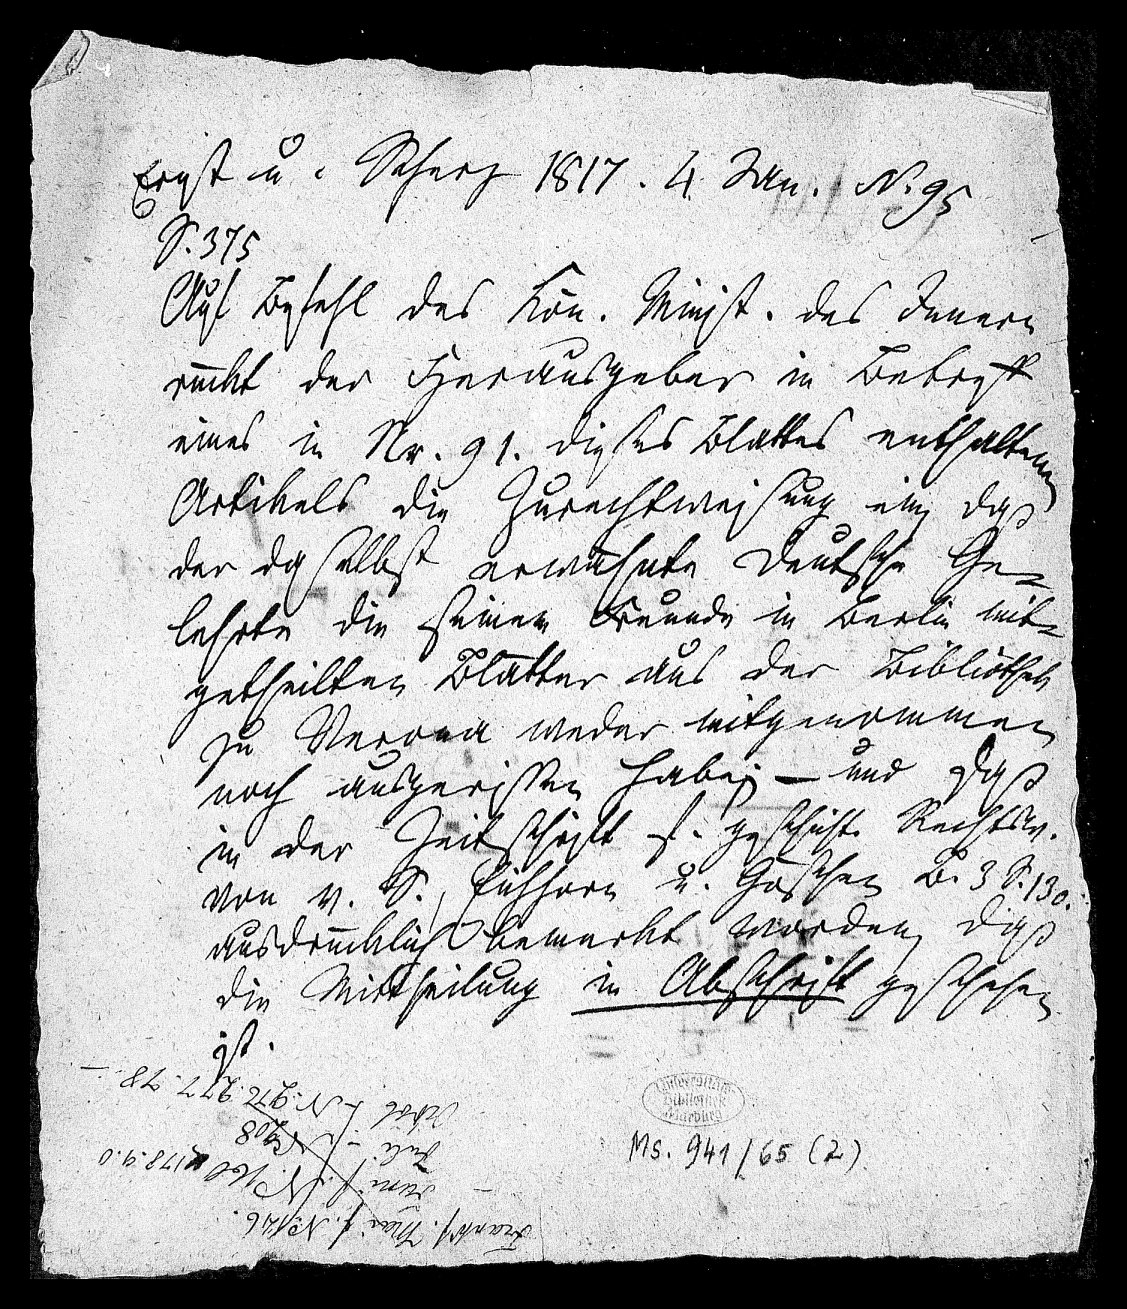 Ernst u. Scherz 1817. 4 Jan. N. 95
S. 375
Auf Befehl des Kön. Minist. des Innern
rückt der Herausgeber in Betreff
eines in Nr. 91. dieses Blattes enthaltenen
Artikels die Zurechtweisung ein, daß
der daselbst erwähnte deutsche Ge-
lehrte die seinem Freunde in Berlin mit-
getheilten Blätter aus der Bibliothek
zu Verona weder mitgenommen
noch ausgerissen habe, – und daß
in der Zeitschrift f. geschichtl. Rechtsw.
von v. S., Eichhorn u. Göschen B. 3 S. 130.
ausdrücklich bemerkt worden, daß
die Mittheilung in Abschrift geschehen
ist.
Universitäts
Bibliothek
Marburg
Ms. 941/65 (2)
Frankf. Mai f. No 146.
Juni
Juli